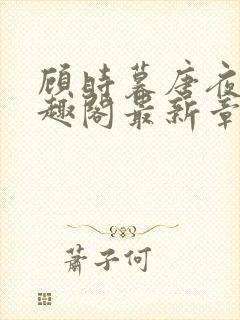 顾时暮唐夜
趣阁最新章
萧子何